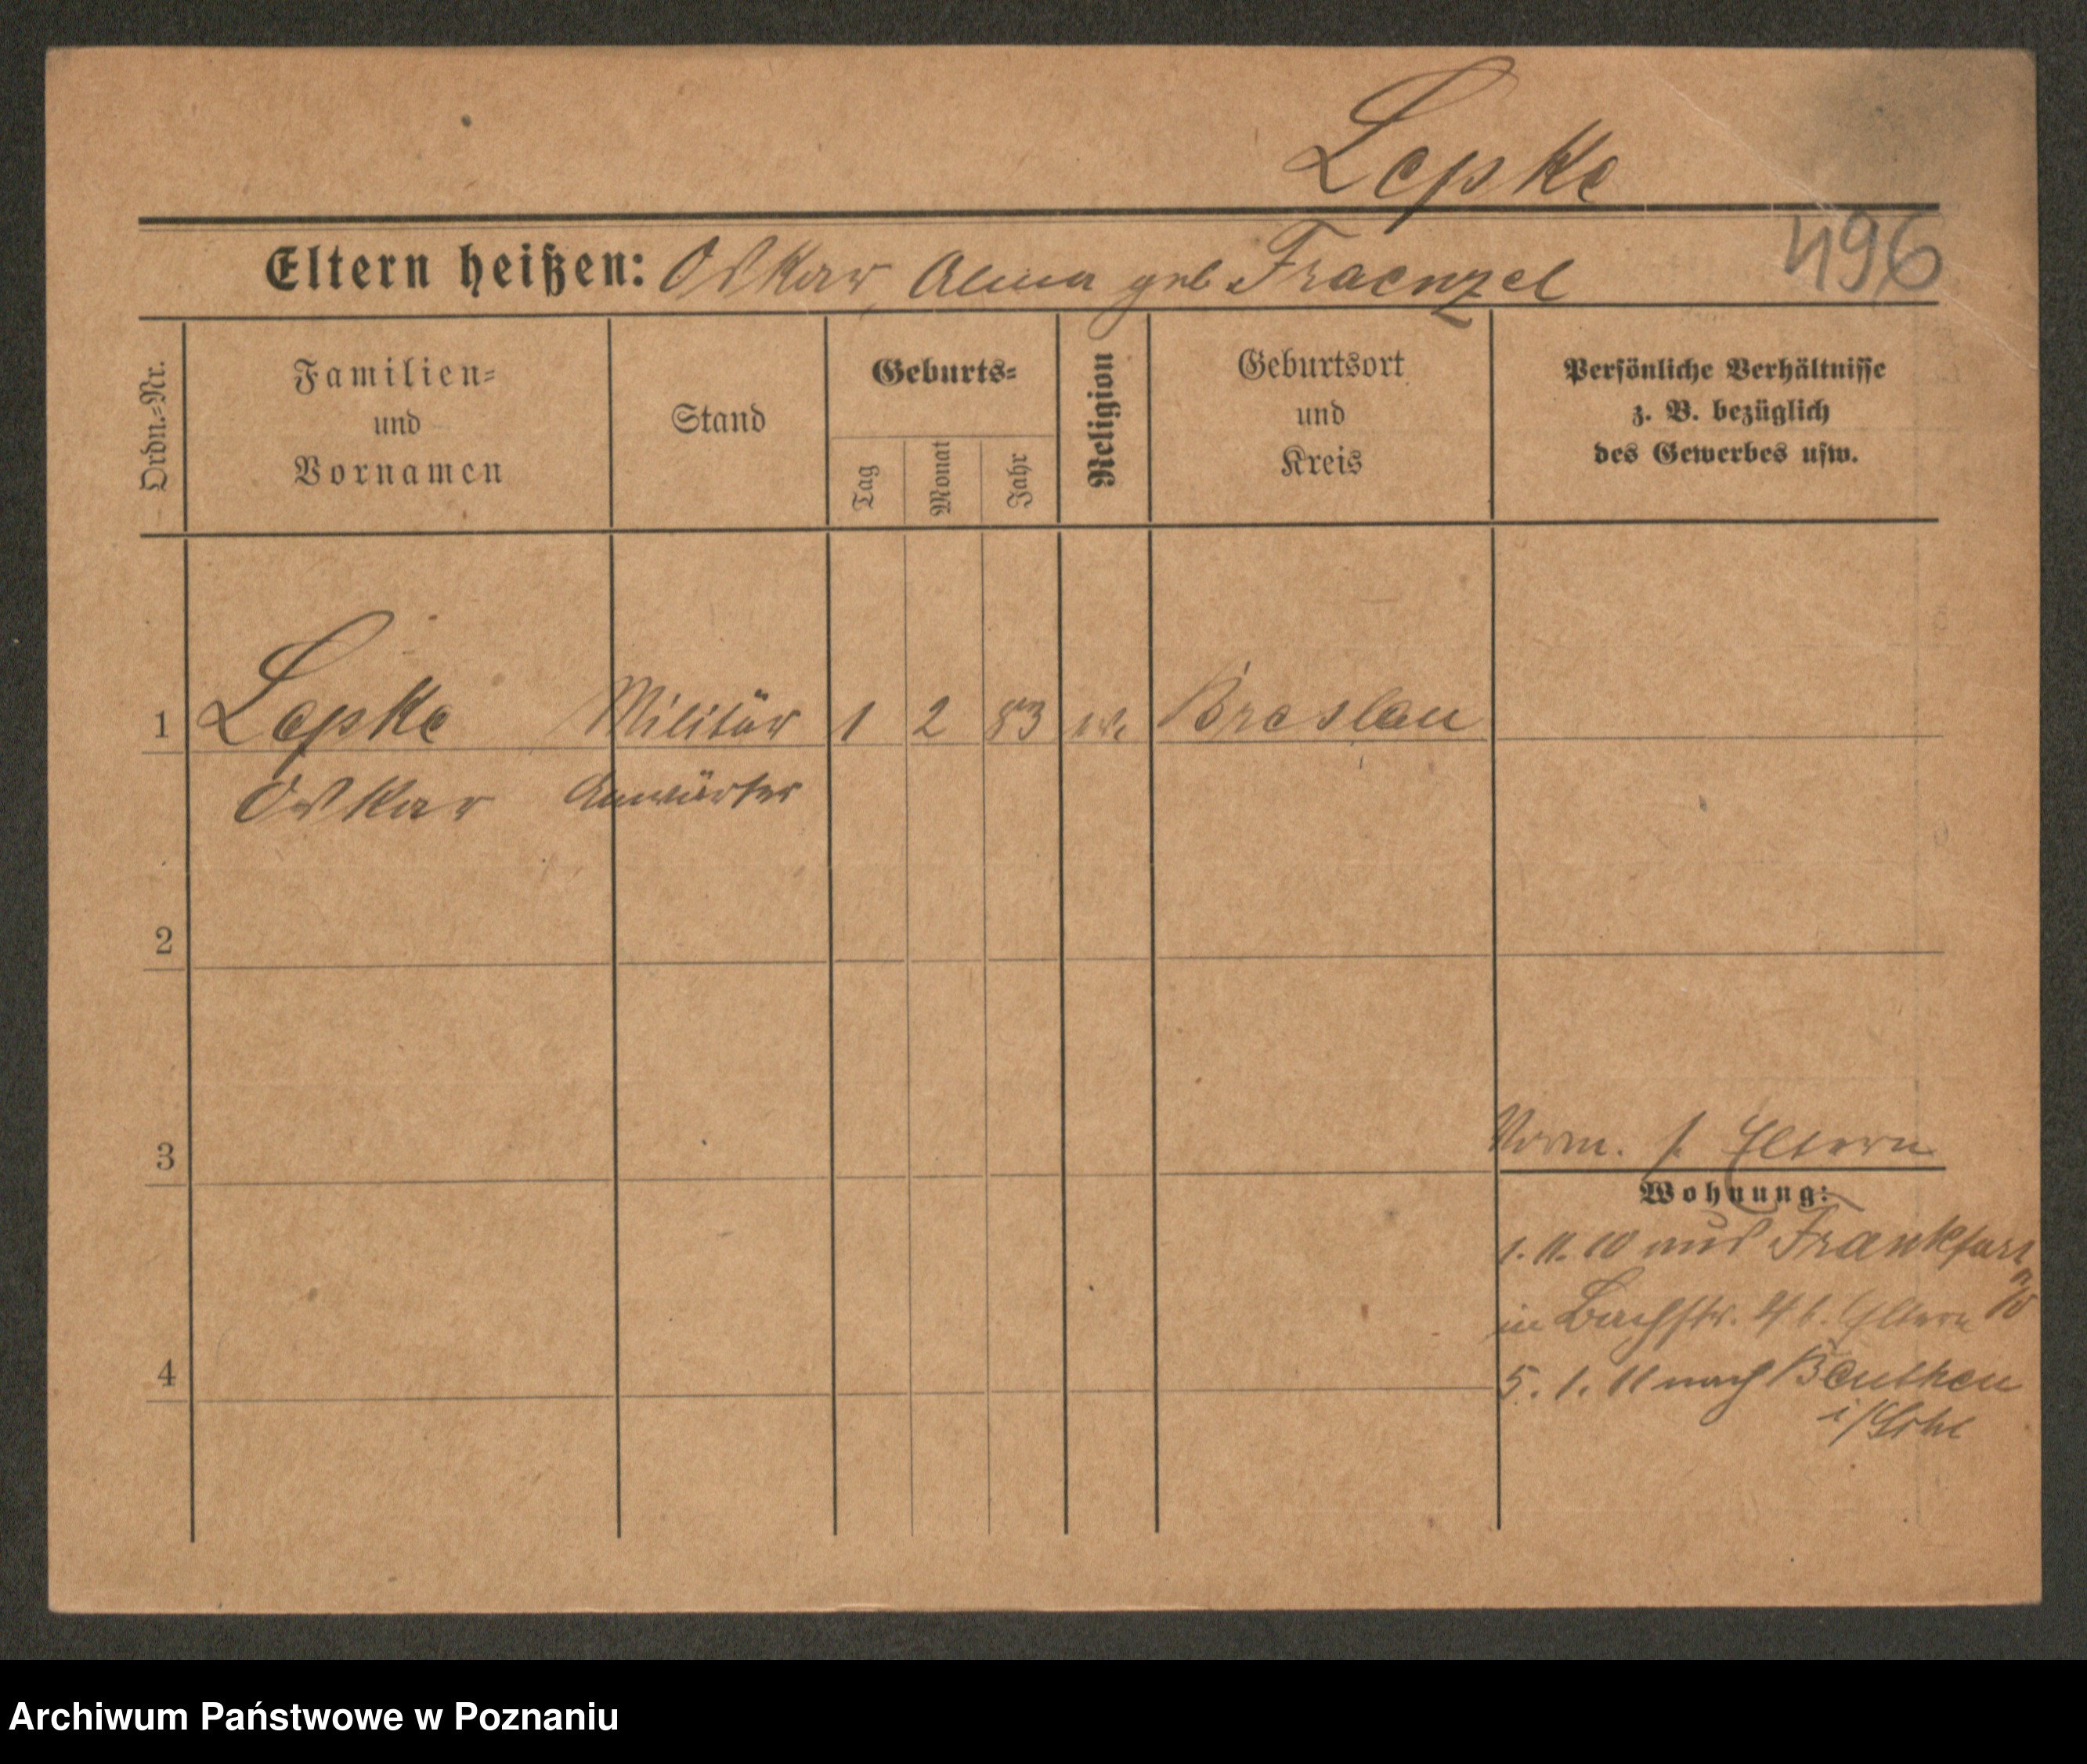 Lepke
496
Eltern heißen: Oskar, Alma geb Fraenzel
Ordn.-Nr.
Familien-
und
Vornamen
Stand
Geburts-
Tag
Monat
Jahr
Religion
Geburtsort
und
Kreis
Persönliche Verhältnisse
z. B. bezüglich
des Gewerbes usw.
1 Lepke Militär 1 2 83 ev. Breslau
Oskar Anwärter
2
3
Vorm. s. Eltern
Wohnung:
1.11.10 aus Frankfurt a/O
in Bachstr. 4 b. Eltern
4
5.1.11 nach Beuthen
Archiwum Państwowe w Poznaniu